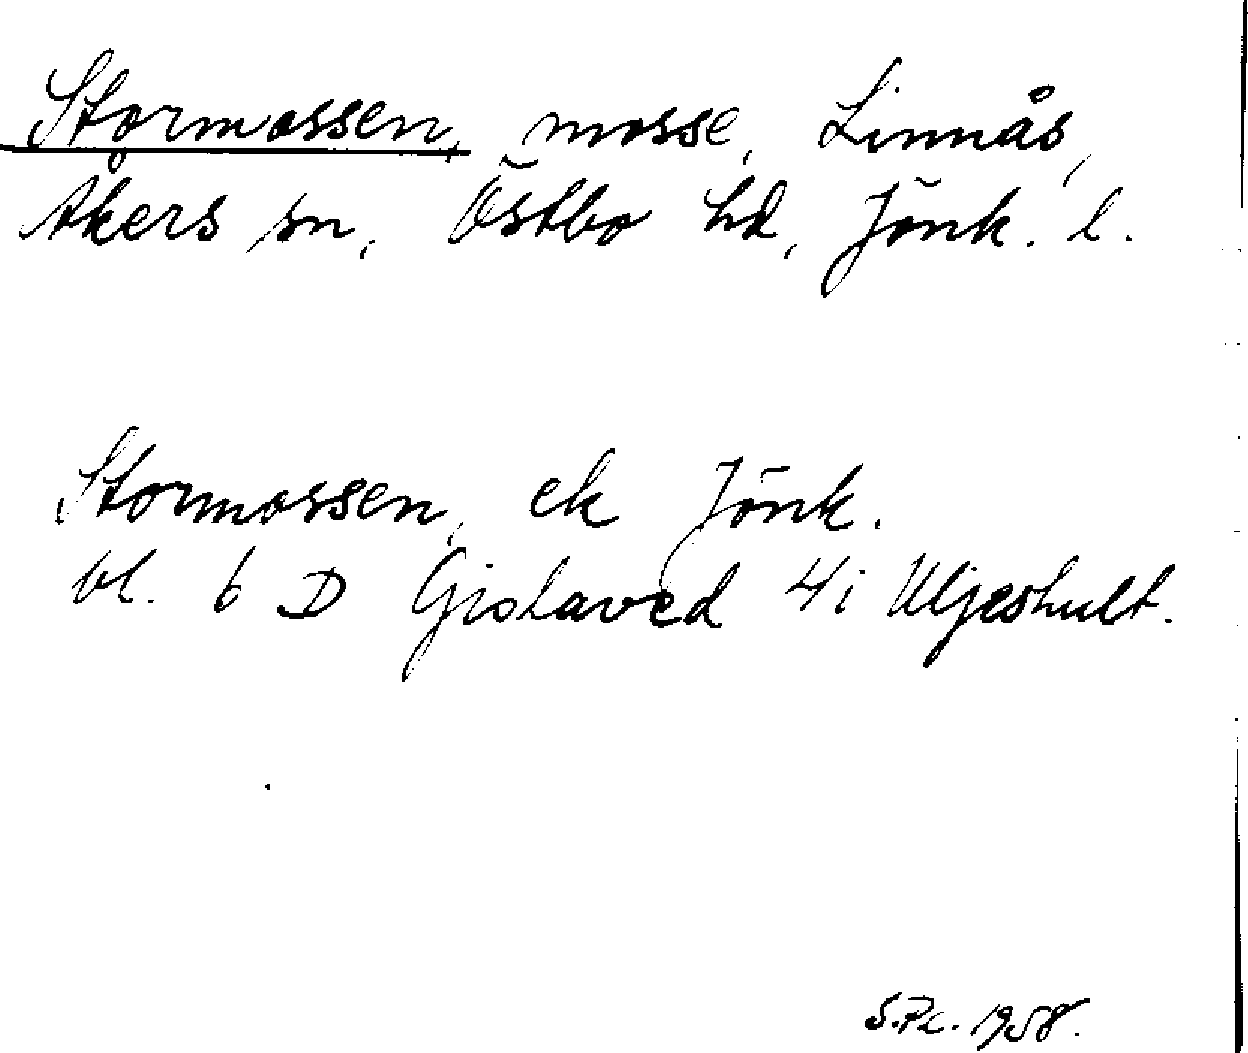 Stormossen, mosse, Linnås,
Åkers sn, Östbo hd, Jönk. l.
Stormossen, ek Jönk.
bl. 6 D Gislaved 4i Uljeshult.
S.Pl. 1958.